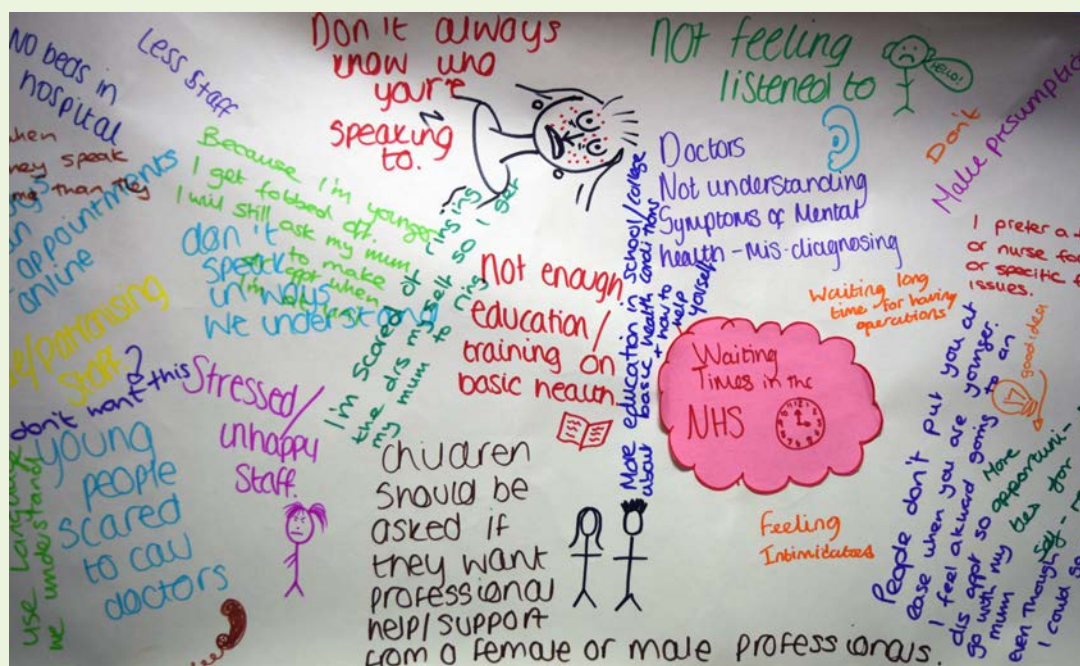 NO beds in
hospital
Less Staff
Don't always
know who
you're
speaking
to.
Not feeling
listened to
HELLO!
Don't
Make presumptio
when
hey speak
me than they
appointments
online
Because I'm younger
I get fobbed of.
I will still ask my mum
to make
appt when
I'm
don't
speak
in ways
we understand
I'm scared of ringing
the drs myself so I get
my mum to ring
Not enough
education/
training on
basic health
More education in school/college
about basic health conditions
+ how to
help
yourself
Doctors
Not understanding
Symptoms of Mental
health - mis-diagnosing
I prefer a
or nurse fo
or specific
issues.
Waiting long
time for having
operations
good idea
Waiting
Times in the
NHS
e/patronising
Staff
don't want this
?
Stressed/
unhappy
Staff.
young
people
scared
to call
doctors
use language
we understand
children
should be
asked if
they want
professional
help/support
from a female or male professionals.
Feeling
Intimidated
People don't put you at
ease when you are younger.
I feel akward going to an
drs appt so
go with my
mum
even though
I could go
More
opportuni-
ties for
self-